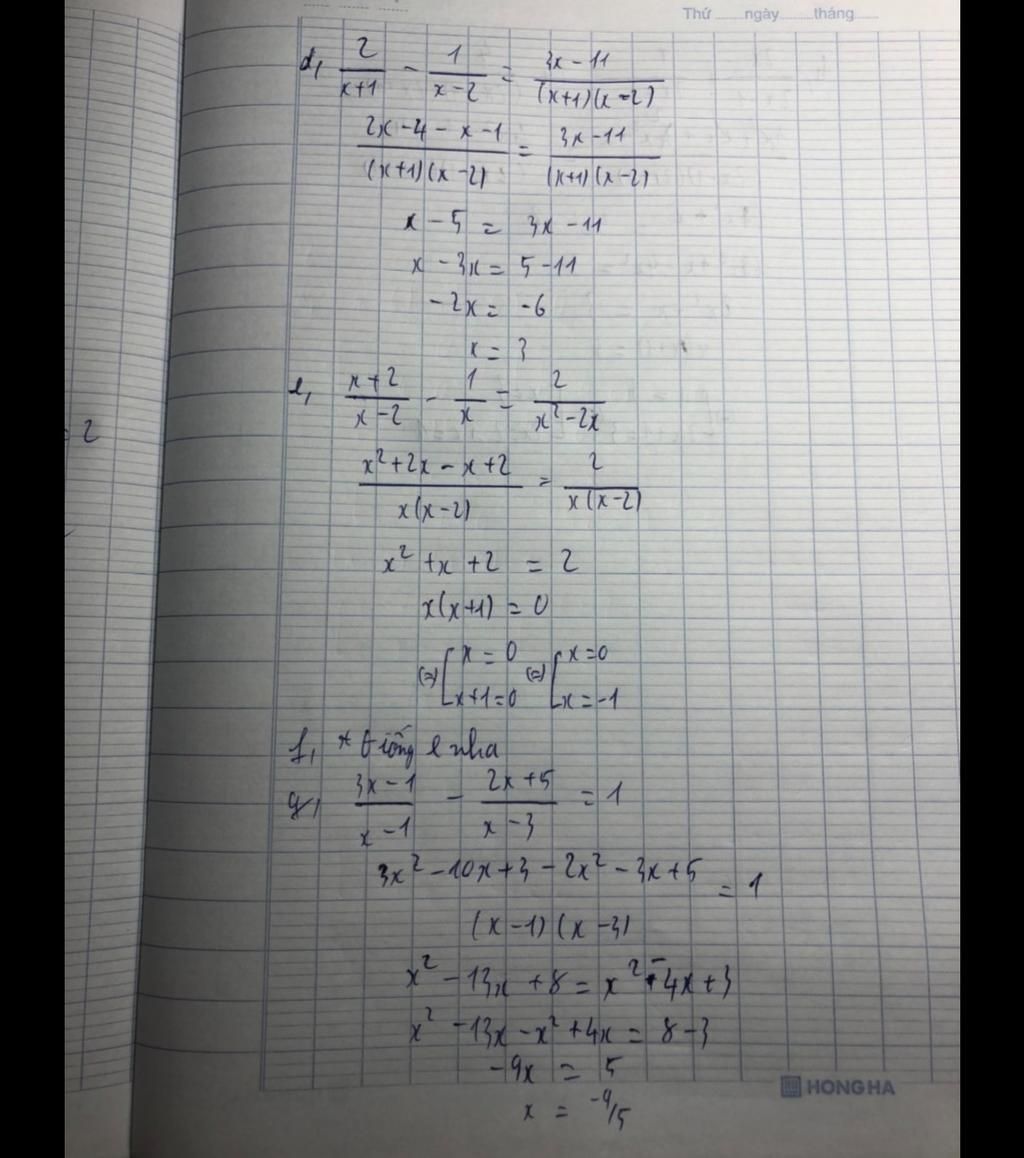 Thứ ngày tháng
d, 2/(x+1) - 1/(x-2) = (3x-11)/((x+1)(x-2))
(2x-4-x-1)/((x+1)(x-2)) = (3x-11)/((x+1)(x-2))
x - 5 = 3x - 11
x - 3x = 5 - 11
-2x = -6
x = 3
e, (x+2)/(x-2) - 1/x = 2/(x²-2x)
2
(x²+2x-x+2)/(x(x-2)) = 2/(x(x-2))
x² + x + 2 = 2
x(x+1) = 0
(=) [x = 0 (=) [x = 0
x+1 = 0 x = -1
f, * Giống e nha
g, (3x-1)/(x-1) - (2x+5)/(x-3) = 1
(3x²-10x+3-2x²-3x+5)/((x-1)(x-3)) = 1
x² - 13x + 8 = x² - 4x + 3
x² - 13x - x² + 4x = 8 - 3
-9x = 5
x = -9/5
HONG HA